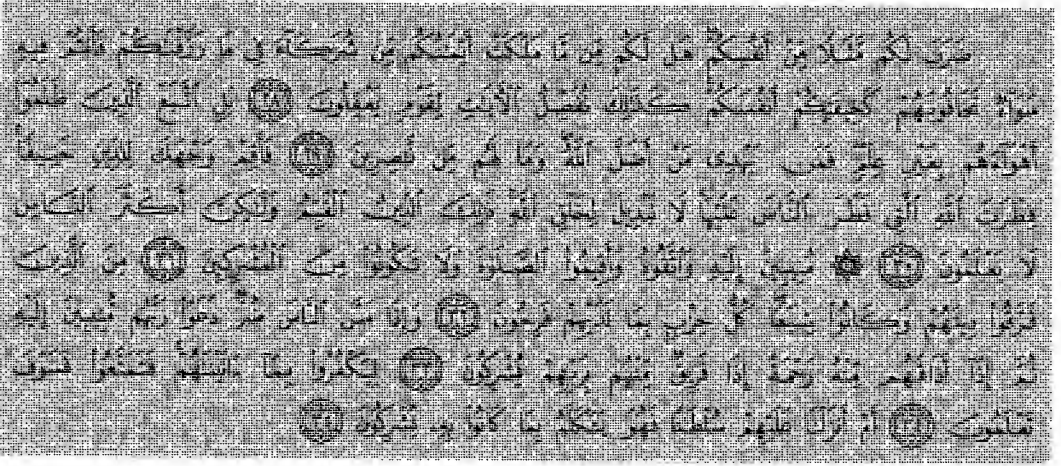 ضَرَبَ لَكُم مَّثَلًا مِّنْ أَنفُسِكُمْ هَل لَّكُم مِّن مَّا مَلَكَتْ أَيْمَٰنُكُم مِّن شُرَكَآءَ فِى مَا رَزَقْنَٰكُمْ فَأَنتُمْ فِيهِ
سَوَآءٌ تَخَافُونَهُمْ كَخِيفَتِكُمْ أَنفُسَكُمْ كَذَٰلِكَ نُفَصِّلُ ٱلْءَايَٰتِ لِقَوْمٍ يَعْقِلُونَ ٢٨ بَلِ ٱتَّبَعَ ٱلَّذِينَ ظَلَمُوٓا۟
أَهْوَآءَهُم بِغَيْرِ عِلْمٍ فَمَن يَهْدِى مَنْ أَضَلَّ ٱللَّهُ وَمَا لَهُم مِّن نَّٰصِرِينَ ٢٩ فَأَقِمْ وَجْهَكَ لِلدِّينِ حَنِيفًا
فِطْرَتَ ٱللَّهِ ٱلَّتِى فَطَرَ ٱلنَّاسَ عَلَيْهَا لَا تَبْدِيلَ لِخَلْقِ ٱللَّهِ ذَٰلِكَ ٱلدِّينُ ٱلْقَيِّمُ وَلَٰكِنَّ أَكْثَرَ ٱلنَّاسِ
لَا يَعْلَمُونَ ٣٠ ۞ مُنِيبِينَ إِلَيْهِ وَٱتَّقُوهُ وَأَقِيمُوا۟ ٱلصَّلَوٰةَ وَلَا تَكُونُوا۟ مِنَ ٱلْمُشْرِكِينَ ٣١ مِنَ ٱلَّذِينَ
فَرَّقُوا۟ دِينَهُمْ وَكَانُوا۟ شِيَعًا كُلُّ حِزْبٍۭ بِمَا لَدَيْهِمْ فَرِحُونَ ٣٢ وَإِذَا مَسَّ ٱلنَّاسَ ضُرٌّ دَعَوْا۟ رَبَّهُم مُّنِيبِينَ إِلَيْهِ
ثُمَّ إِذَآ أَذَاقَهُم مِّنْهُ رَحْمَةً إِذَا فَرِيقٌ مِّنْهُم بِرَبِّهِمْ يُشْرِكُونَ ٣٣ لِيَكْفُرُوا۟ بِمَآ ءَاتَيْنَٰهُمْ فَتَمَتَّعُوا۟ فَسَوْفَ
تَعْلَمُونَ ٣٤ أَمْ أَنزَلْنَا عَلَيْهِمْ سُلْطَٰنًا فَهُوَ يَتَكَلَّمُ بِمَا كَانُوا۟ بِهِۦ يُشْرِكُونَ ٣٥